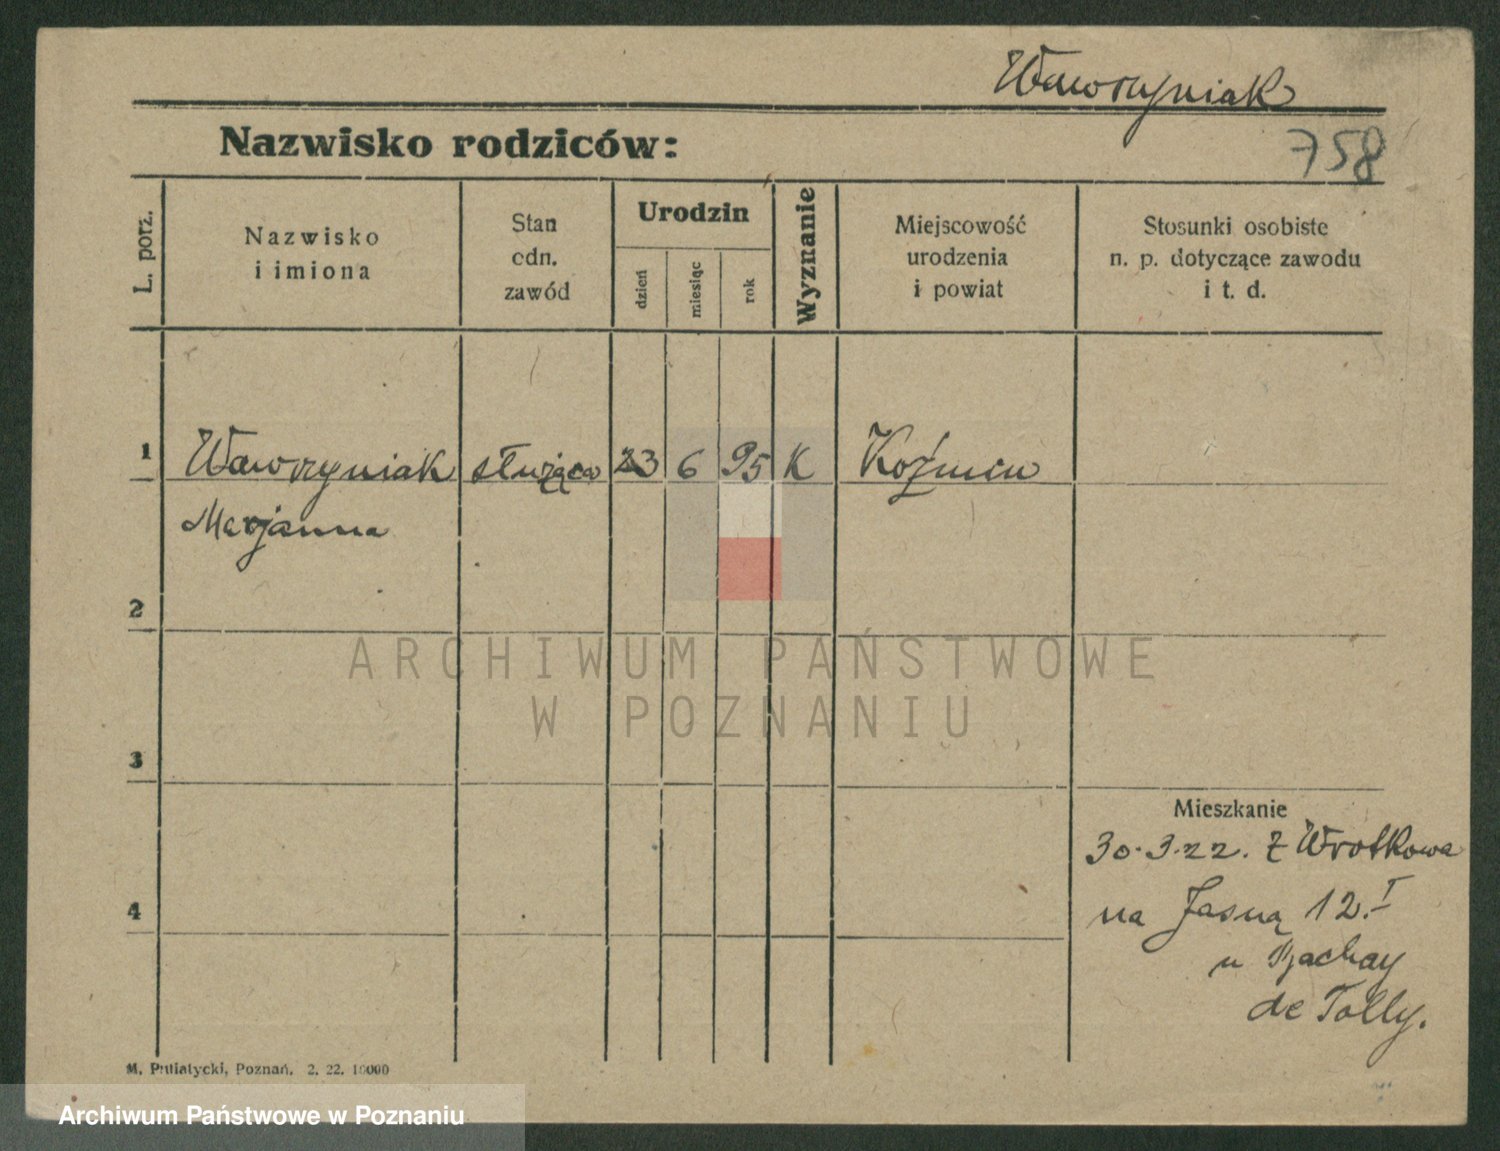 Wawrzyniak
Nazwisko rodziców:
758
L. porz.
Nazwisko
i imiona
Stan
odn.
zawód
Urodzin
dzień
miesiąc
rok
Wyznanie
Miejscowość
urodzenia
i powiat
Stosunki osobiste
n. p. dotyczące zawodu
i t. d.
1
Wawrzyniak służąca 23 6 95 K Koźmin
Marjanna
2
ARCHIWUM PAŃSTWOWE
W POZNANIU
3
Mieszkanie
30.3.22. z Wrotkowa
4
na Jasną 12.I
u
de Tolly.
M. Putiatycki, Poznań. 2. 22. 10000
Archiwum Państwowe w Poznaniu